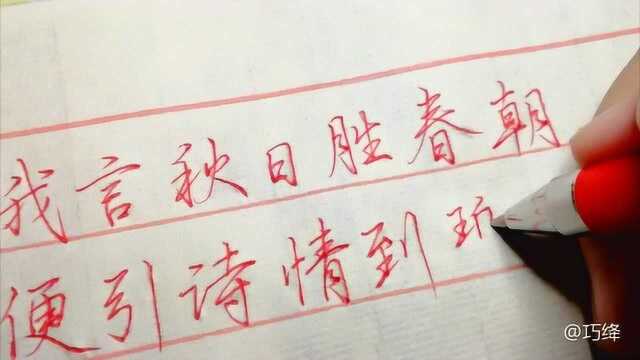 我言秋日胜春朝
便引诗情到
@巧绛